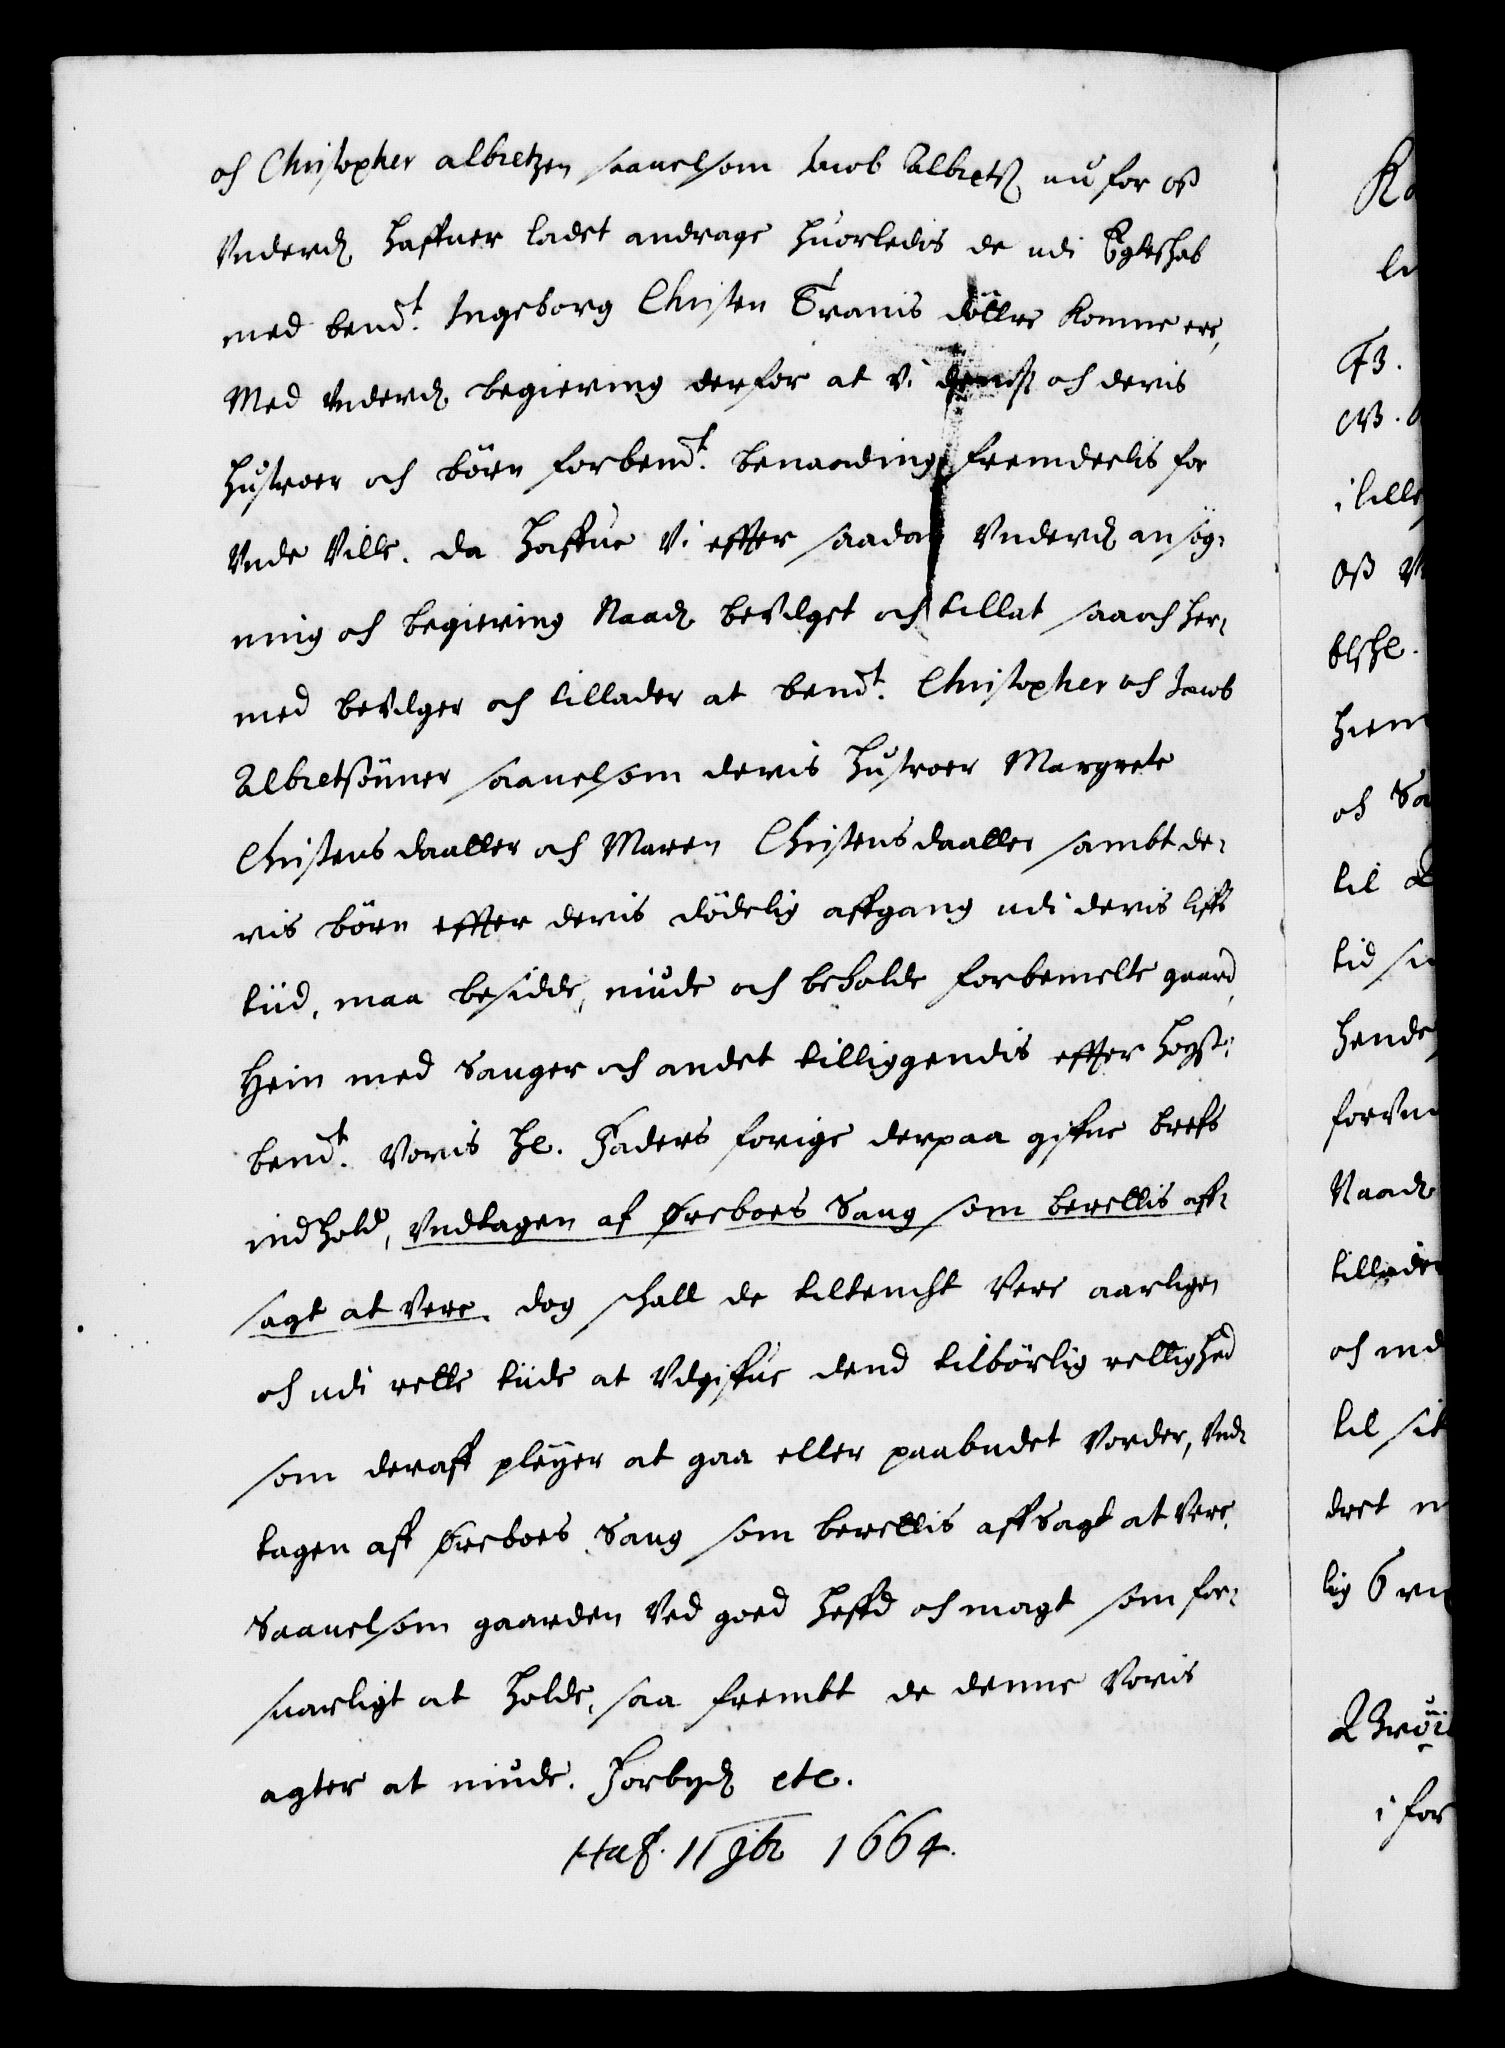 och Christopher albretzen saauelsom Jacob Albretz nu for oß
Underd haffuer ladet andrage huorledis de udi Egteschab
med bemt. Ingeborg Christen Franis döttre komme ere,
Med underd begiering derfor at Vi dennem och deris
hustroer och börn forbemt. benaading fremdeelis for
Unde Ville. da haffue Vi effter saadan Underd ansög-
ning och begiering Naad bevilget och tillat saa och her-
med bevilger och tillader at bemt. Christopher och Jacob
Albretsönner saauelsom deris hustroer Margrete
Christens daatter och Maren Christens daatter sambt de-
ris börn effter deris dödelig affgang udi deris liffs
tiid, maa besidde, niude och beholde forbemelte gaard
Hein med Sauger och andet tilliggendis effter høyst-
bemt. Voris hl. Faders forige derpaa giffne brefs
indhold, Undtagen af Øreboes Saug som berettis aff-
sagt at Vere, dog schall de tiltencht Vere aarligen
och udi rette tiide at Udgiffue dend tilbörlig rettighed
som deraff pleyer at gaa eller paabudet Vorder, Und-
tagen aff Øreboes Saug som berettis affsagt at Vere,
Saauelsom gaarden Ved goed heffd och magt som for-
suarligt at holde, saa frembt de denne Voris
agter at niude. Forbyd etc.
Haf. 11 9br 1664.